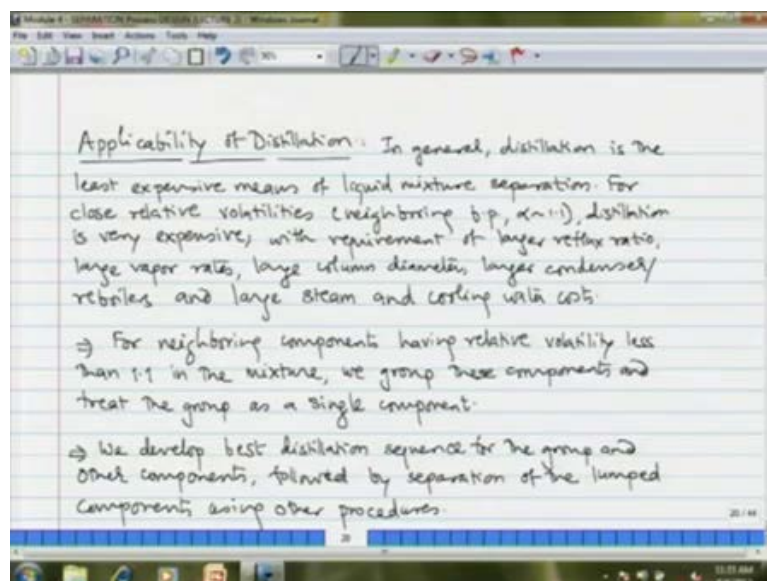 Module 4 - SEPARATION Process DESIGN (LECTURE 2) - Windows Journal
File Edit View Insert Actions Tools Help
Applicability of Distillation: In general, distillation is the
least expensive means of liquid mixture separation. For
close relative volatilities (neighboring b.p., α~1.1), distillation
is very expensive, with requirement of larger reflux ratio,
large vapor rates, large column diameter, larger condenser/
reboilers and large steam and cooling water costs.
⇒ For neighboring components having relative volatility less
than 1.1 in the mixture, we group these components and
treat the group as a single component.
⇒ We develop best distillation sequence for the group and
other components, followed by separation of the lumped
components using other procedures.
20 / 44
20
11:35 AM